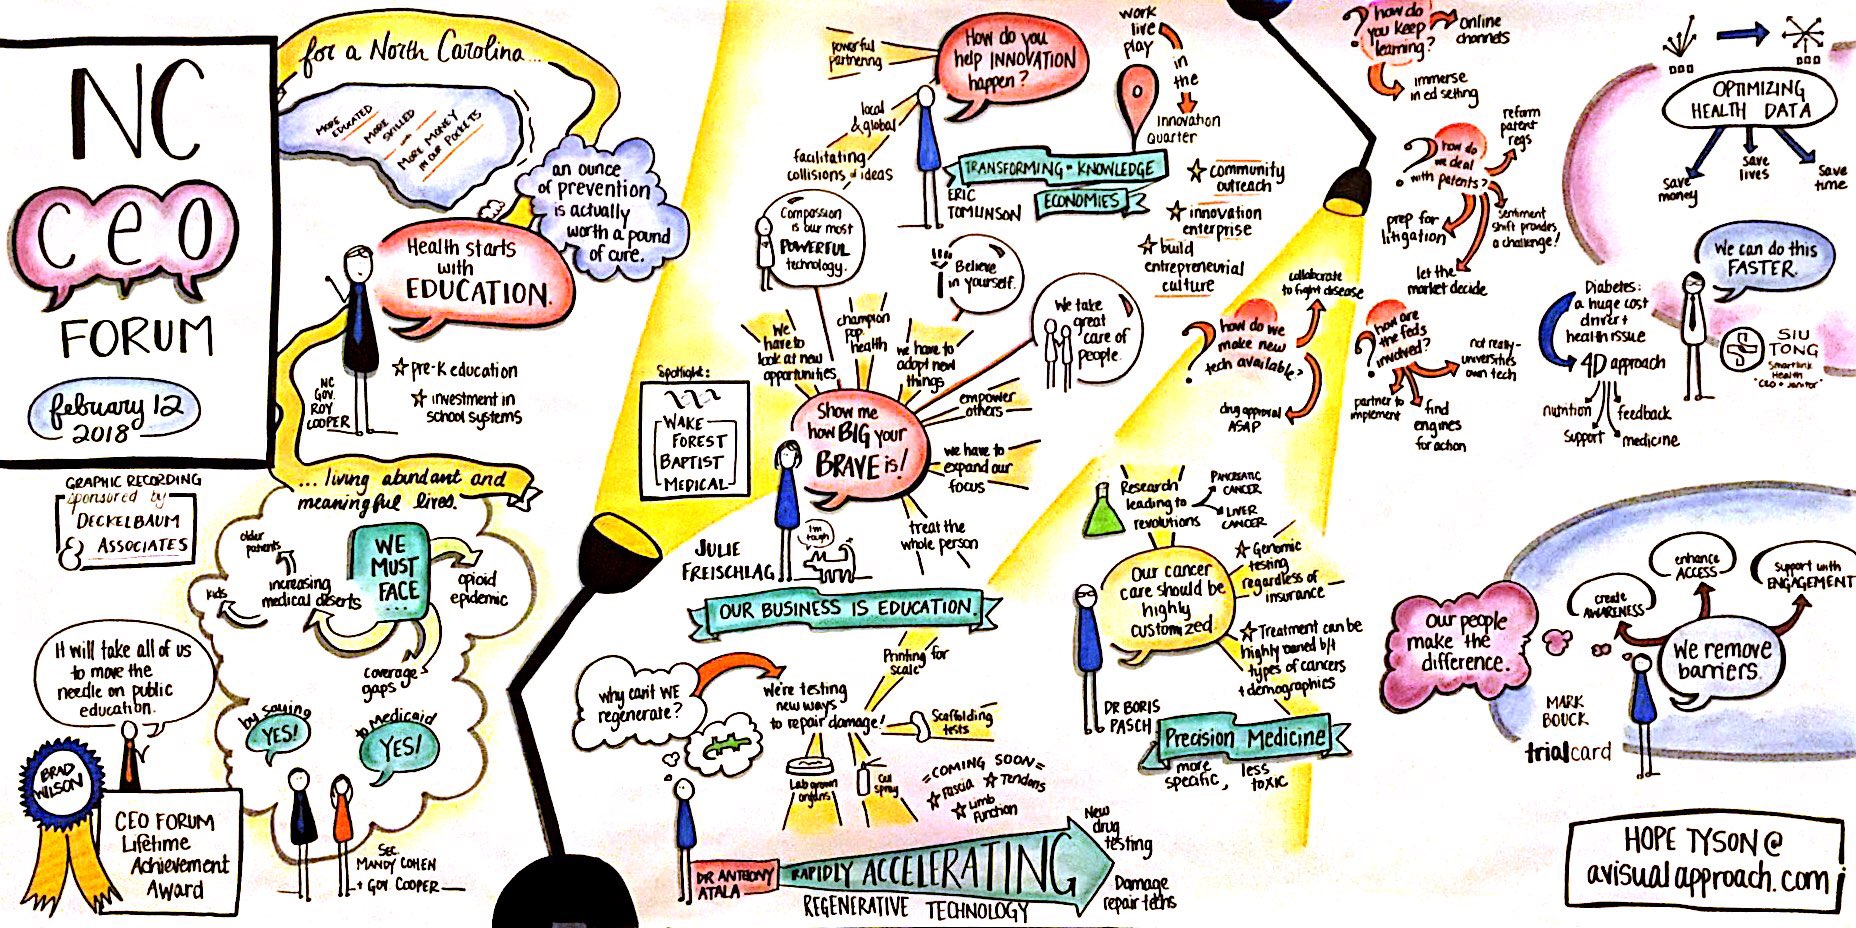 NC
CEO
FORUM
febuary 12
2018
for a North Carolina...
MORE
EDUCATED
MORE
SKILLED
MORE MONEY
IN OUR POCKETS
an ounce
of prevention
is actually
worth a pound
of cure.
Health starts
with
EDUCATION.
NC
GOV.
ROY
COOPER
pre-K education
investment in
school systems
... living abundant and
meaningful lives.
GRAPHIC RECORDING
sponsored by
DECKELBAUM
& ASSOCIATES
WE
MUST
FACE
...
opioid
epidemic
increasing
medical deserts
older
patients
kids
coverage
gaps
by saying
YES!
to Medicaid
YES!
SEC.
MANDY COHEN
+ GOV COOPER
It will take all of us
to move the
needle on public
education.
BRAD
WILSON
CEO FORUM
Lifetime
Achievement
Award
How do you
help INNOVATION
happen?
powerful
partnering
local
& global
facilitating
collisions of ideas
ERIC
TOMLINSON
TRANSFORMING = KNOWLEDGE
ECONOMIES
work
live
play
in
the
Innovation
Quarter
community
outreach
innovation
enterprise
build
entrepreneurial
culture
Spotlight:
WAKE
FOREST
BAPTIST
MEDICAL
Compassion
is our most
POWERFUL
technology.
Believe
in yourself.
We take
great
care of
people.
We
have to
look at new
opportunities
champion
pop.
health
we have to
adopt new
things
empower
others
we have to
expand our
focus
treat the
whole person
Show me
how BIG your
BRAVE is!
I'm
tough
JULIE
FREISCHLAG
OUR BUSINESS IS EDUCATION.
why can't WE
regenerate?
We're testing
new ways
to repair damage!
Printing for
scale
Scaffolding
tests
Lab grown
organs
Cell
spray
=COMING SOON=
Fascia
Tendons
Limb
function
DR ANTHONY
ATALA
RAPIDLY ACCELERATING
REGENERATIVE TECHNOLOGY
New
drug
testing
Damage
repair techs
Research
leading to
revolutions
PANCREATIC
CANCER
LIVER
CANCER
Our cancer
care should be
highly
customized.
Genomic
testing
regardless of
insurance
Treatment can be
highly varied b/t
types of cancers
+ demographics
DR BORIS
PASCH
Precision Medicine
more
specific,
less
toxic
how do
you keep
learning?
online
channels
immerse
in ed setting
how do
we deal
with patents?
reform
patent
regs
sentiment
shift provides
a challenge!
prep for
litigation
let the
market decide
how do we
make new
tech available?
collaborate
to fight disease
drug approval
ASAP
how are
the feds
involved?
not really-
universities
own tech
partner to
implement
find
engines
for action
OPTIMIZING
HEALTH DATA
save
money
save
lives
save
time
We can do this
FASTER.
Diabetes:
a huge cost
driver +
health issue
4D approach
nutrition
support
feedback
medicine
SIU
TONG
Smartlink
Health
"CEO + Janitor"
Our people
make the
difference.
create
AWARENESS
enhance
ACCESS
Support with
ENGAGEMENT
We remove
barriers.
MARK
BOUCK
trialcard
HOPE TYSON @
avisualapproach.com